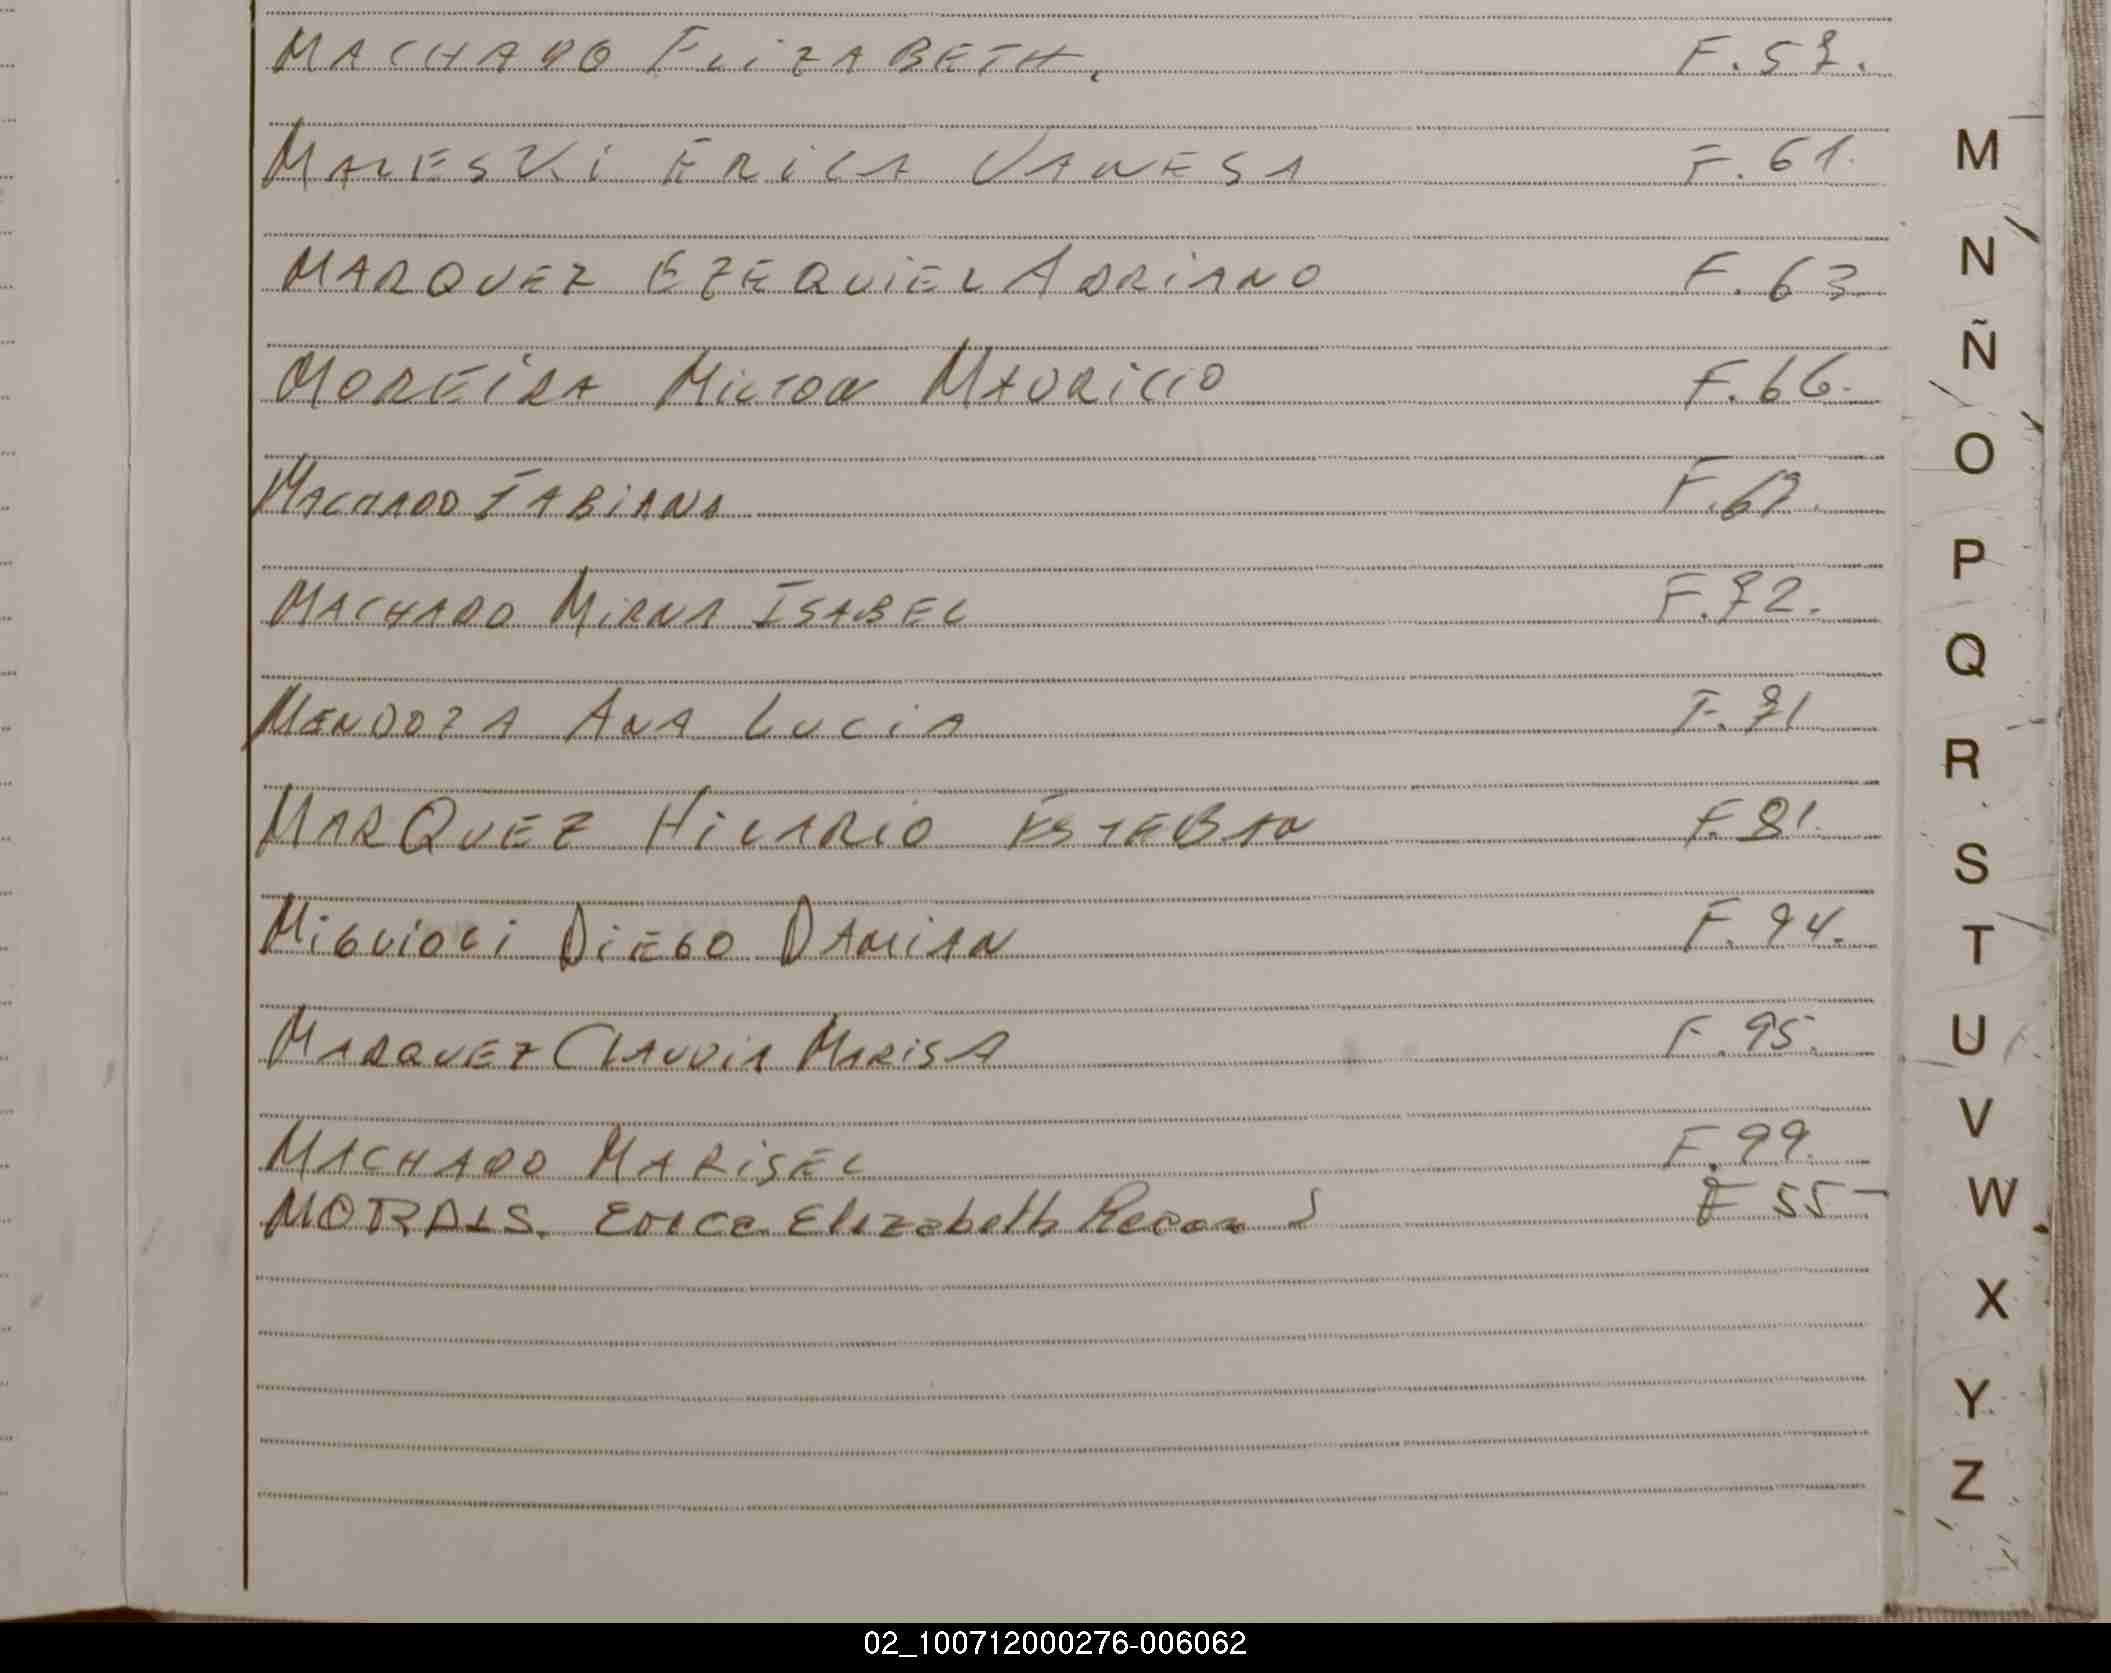 MACHADO ELIZABETH. F.57.
MALESKI ERICA VANESA F.61.
MARQUEZ EZEQUIEL ADRIANO F.63
MOREIRA MILTON MAURICIO F.66.
MACHADO FABIANA F.67.
MACHADO MIRNA ISABEL F.72.
MENDOZA ANA LUCIA F.71
MARQUEZ HILARIO ESTEBAN F.81.
MIGUIOLI DIEGO DAMIAN F.94.
MARQUEZ CLAUDIA MARISA F.95.
MACHADO MARISEL F.99.
MORAIS. Elizabeth F 55
M
N
Ñ
O
P
Q
R
S
T
U
V
W
X
Y
Z
02_100712000276-006062